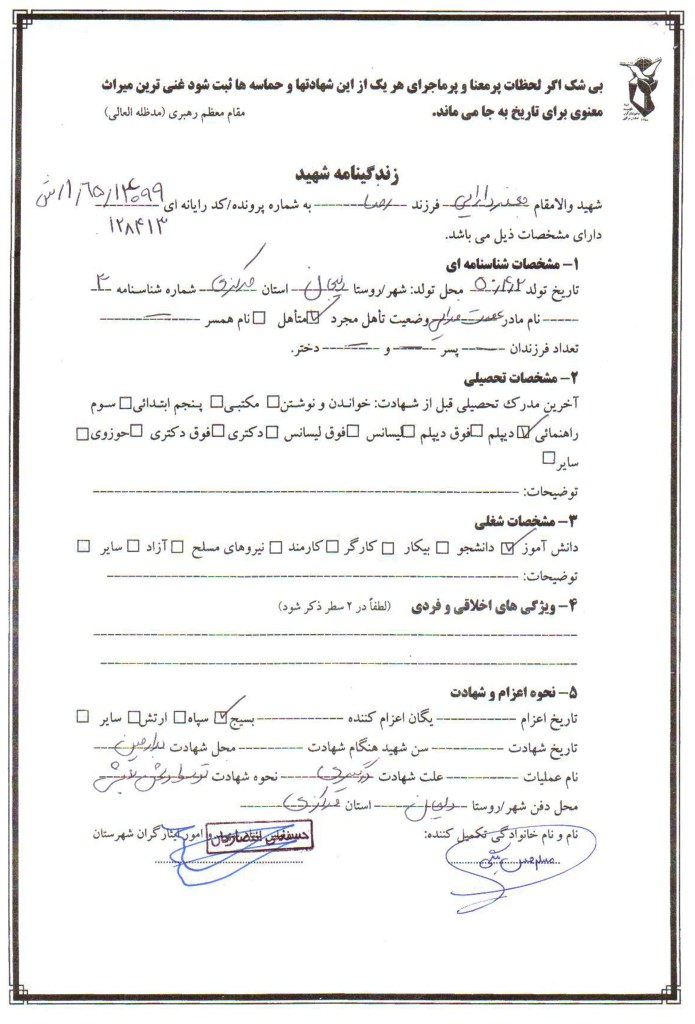 بی شک اگر لحظات پرمعنا و پرماجرای هر یک از این شهادتها و حماسه ها ثبت شود غنی ترین میراث
معنوی برای تاریخ به جا می ماند. مقام معظم رهبری (مدظله العالی)
زندگینامه شهید
شهید والامقام فرزند رضا به شماره پرونده/کد رایانه ای
۱۲۸۴۱۳
دارای مشخصات ذیل می باشد.
۱- مشخصات شناسنامه ای
تاریخ تولد محل تولد: شهر/روستا استان مرکزی شماره شناسنامه
نام مادر عصمت وضعیت تأهل مجرد متأهل نام همسر
تعداد فرزندان پسر و دختر.
۲- مشخصات تحصیلی
آخرین مدرک تحصیلی قبل از شهادت: خواندن و نوشتن مکتبی پنجم ابتدائی سوم
راهنمائی دیپلم فوق دیپلم لیسانس فوق لیسانس دکتری فوق دکتری حوزوی
سایر
توضیحات:
۳- مشخصات شغلی
دانش آموز دانشجو بیکار کارگر کارمند نیروهای مسلح آزاد سایر
توضیحات:
۴- ویژگی های اخلاقی و فردی (لطفاً در ۲ سطر ذکر شود)
۵- نحوه اعزام و شهادت
تاریخ اعزام یگان اعزام کننده بسیج سپاه ارتش سایر
تاریخ شهادت سن شهید هنگام شهادت محل شهادت
نام عملیات علت شهادت درگیری نحوه شهادت توسط
محل دفن شهر/روستا استان مرکزی
نام و نام خانوادگی تکمیل کننده: و امور ایثارگران شهرستان